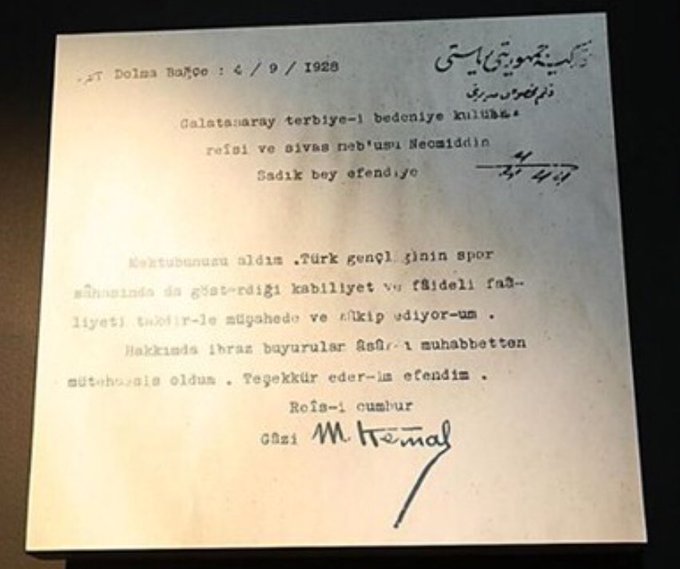 Dolma Bağçe : 4 / 9 / 1928
تركيه جمهوريتى رياستى
قلم مخصوص مديرى
Galatasaray terbiye-i bedeniye kulübü
reîsi ve sivas meb'usu Necmiddin
Sadık bey efendiye
Mektubunuzu aldım .Türk gençliğinin spor
sâhasında da gösterdiği kabiliyet ve fâideli faâ-
liyeti takdir-le müşahede ve tâkip ediyor-um .
Hakkımda ibraz buyurular âsâr-ı muhabbetten
mütehassis oldum . Teşekkür eder-im efendim .
Reîs-i cumhur
Gâzi M. Kemal